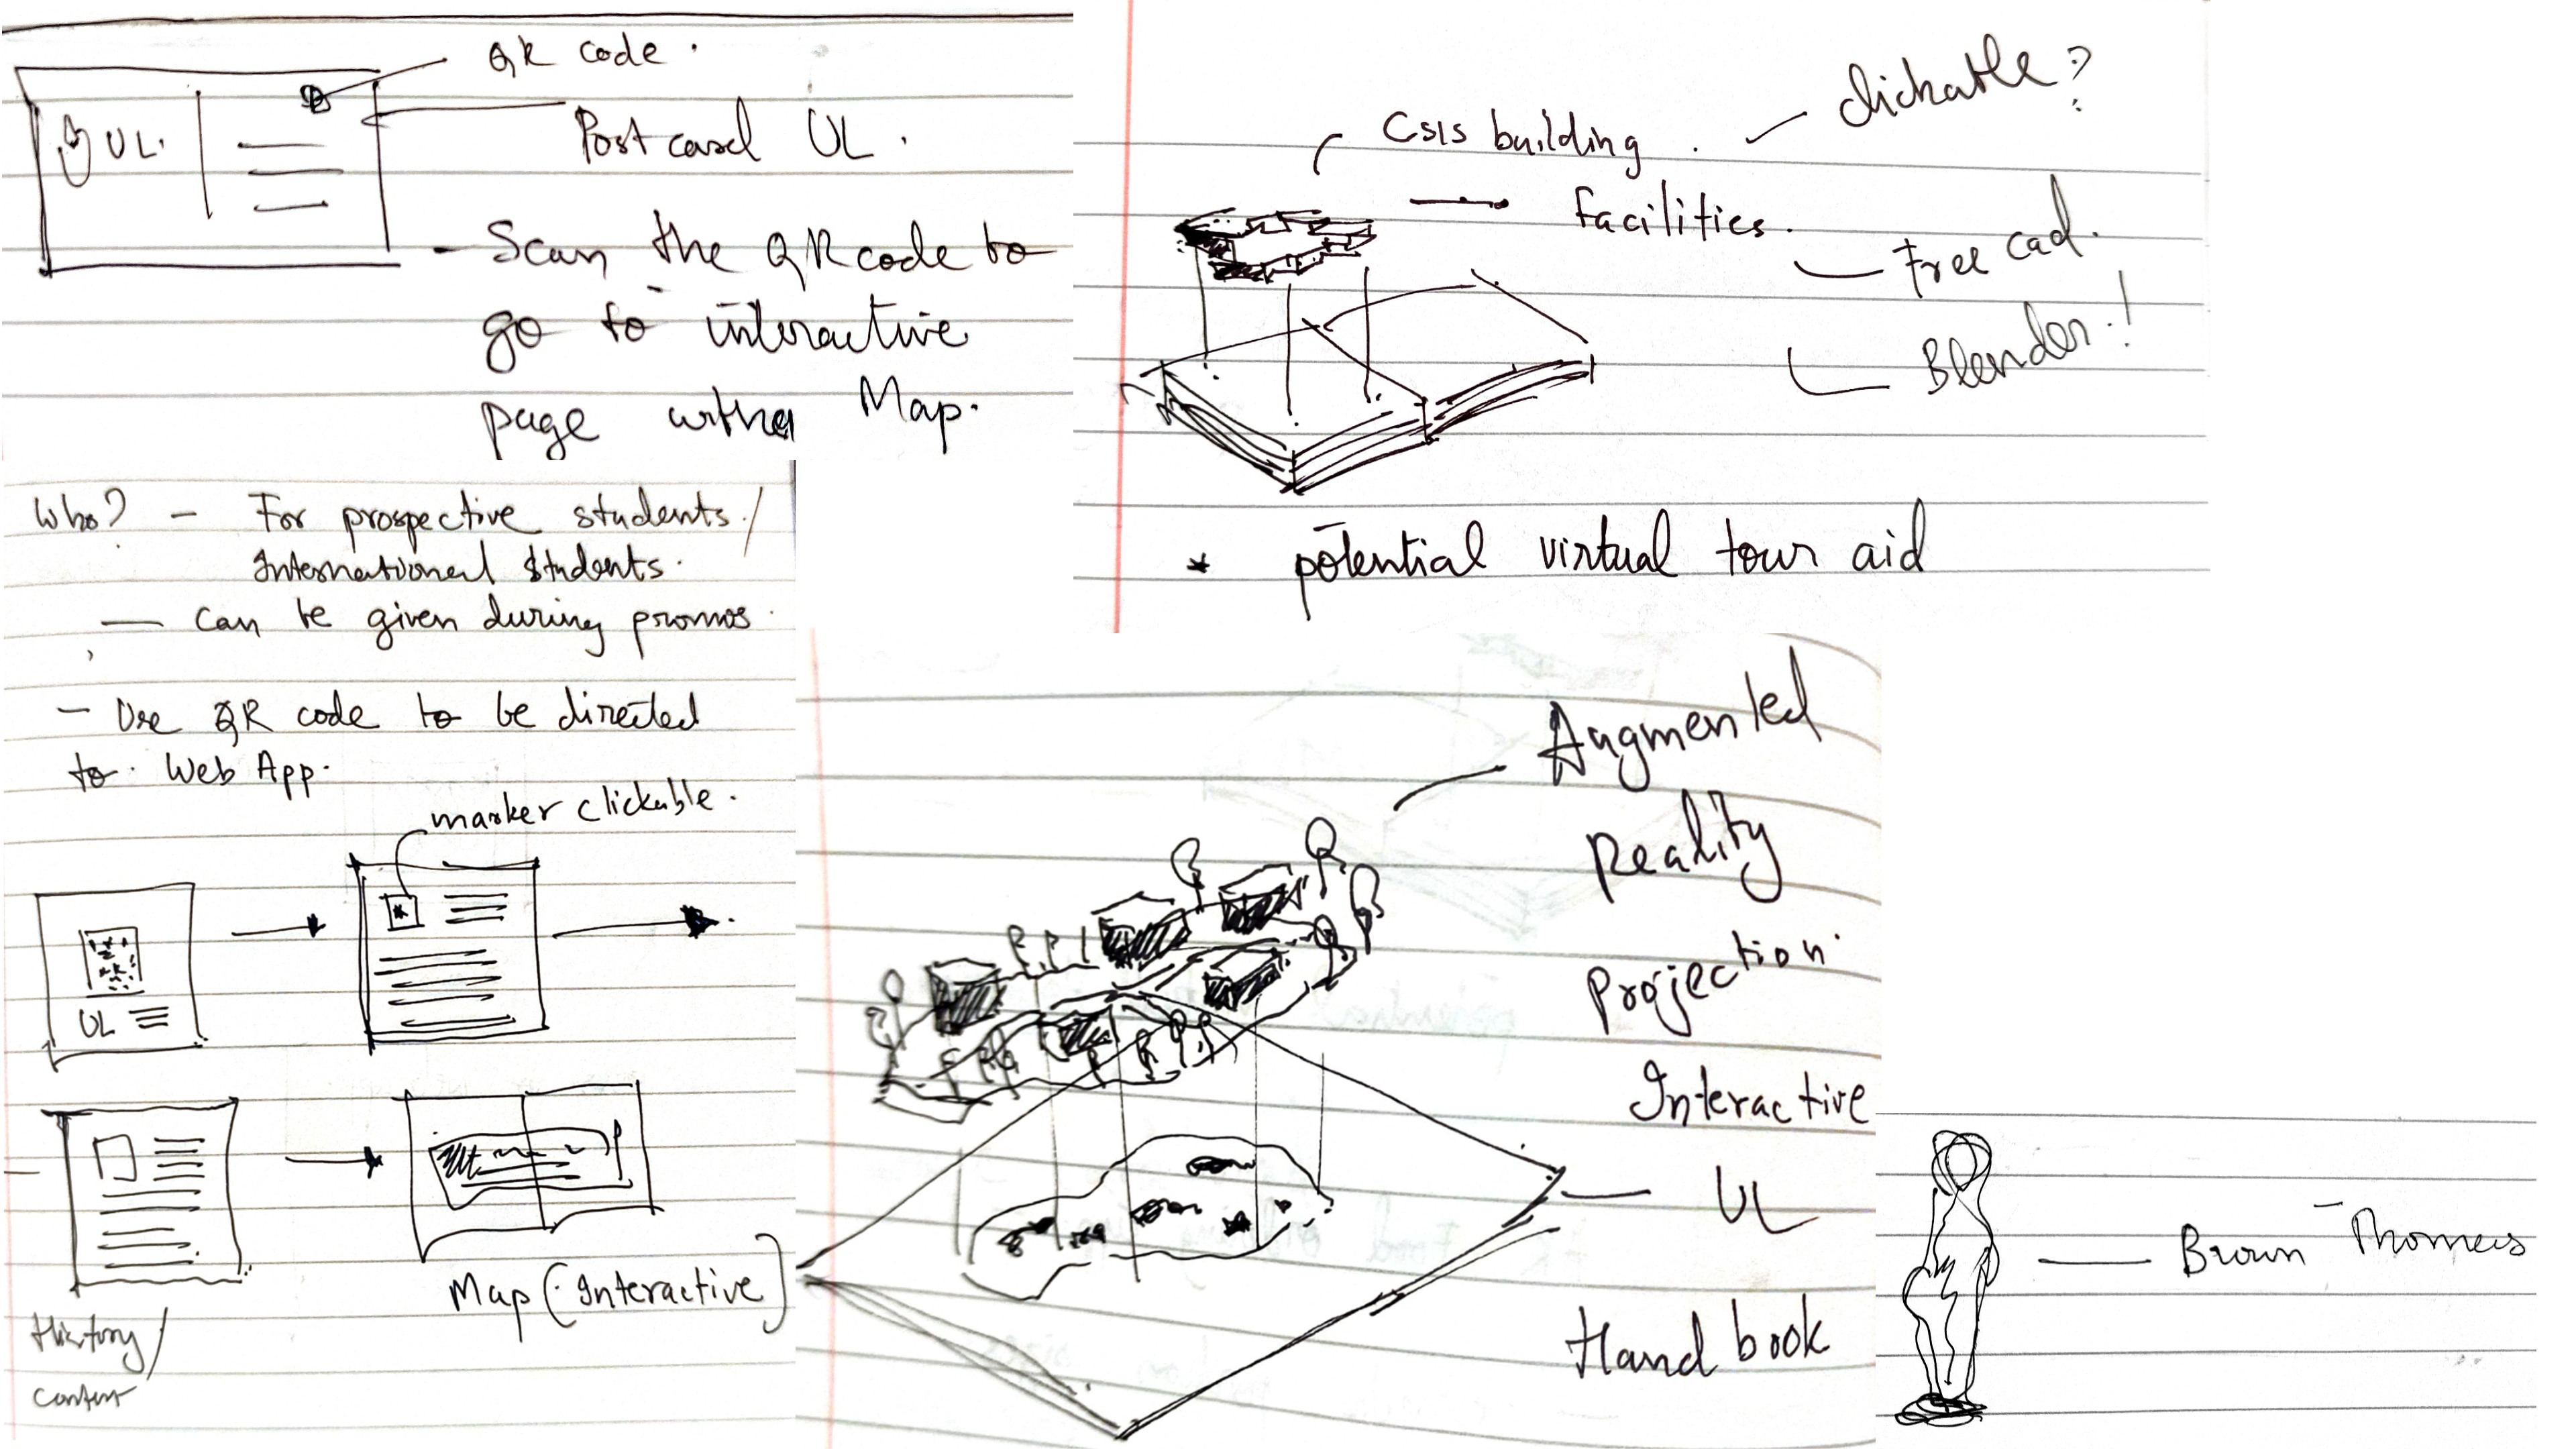 QR code.
UL.
Postcard UL.
- Scan the QR code to
go to interactive
page with a Map.
CSIS building.
clickable?
facilities.
Free cad.
Blender!
* potential virtual tour aid
Who? - For prospective students /
International Students.
— can be given during promos.
- Use QR code to be directed
to Web App.
marker clickable.
UL
History /
content
Map (Interactive)
Augmented
Reality
Projection.
Interactive
UL
Hand book
Brown Thomas